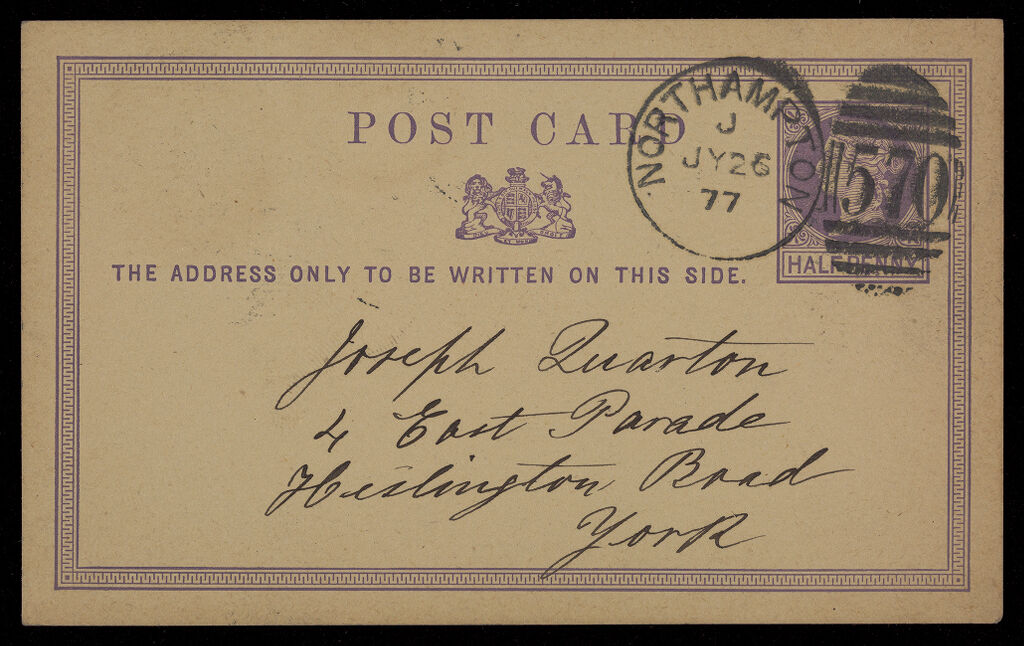 POST CARD
NORTHAMPTON
J
JY26
77
570
HALFPENNY
THE ADDRESS ONLY TO BE WRITTEN ON THIS SIDE.
Joseph Quarton
4 East Parade
Heslington Road
York